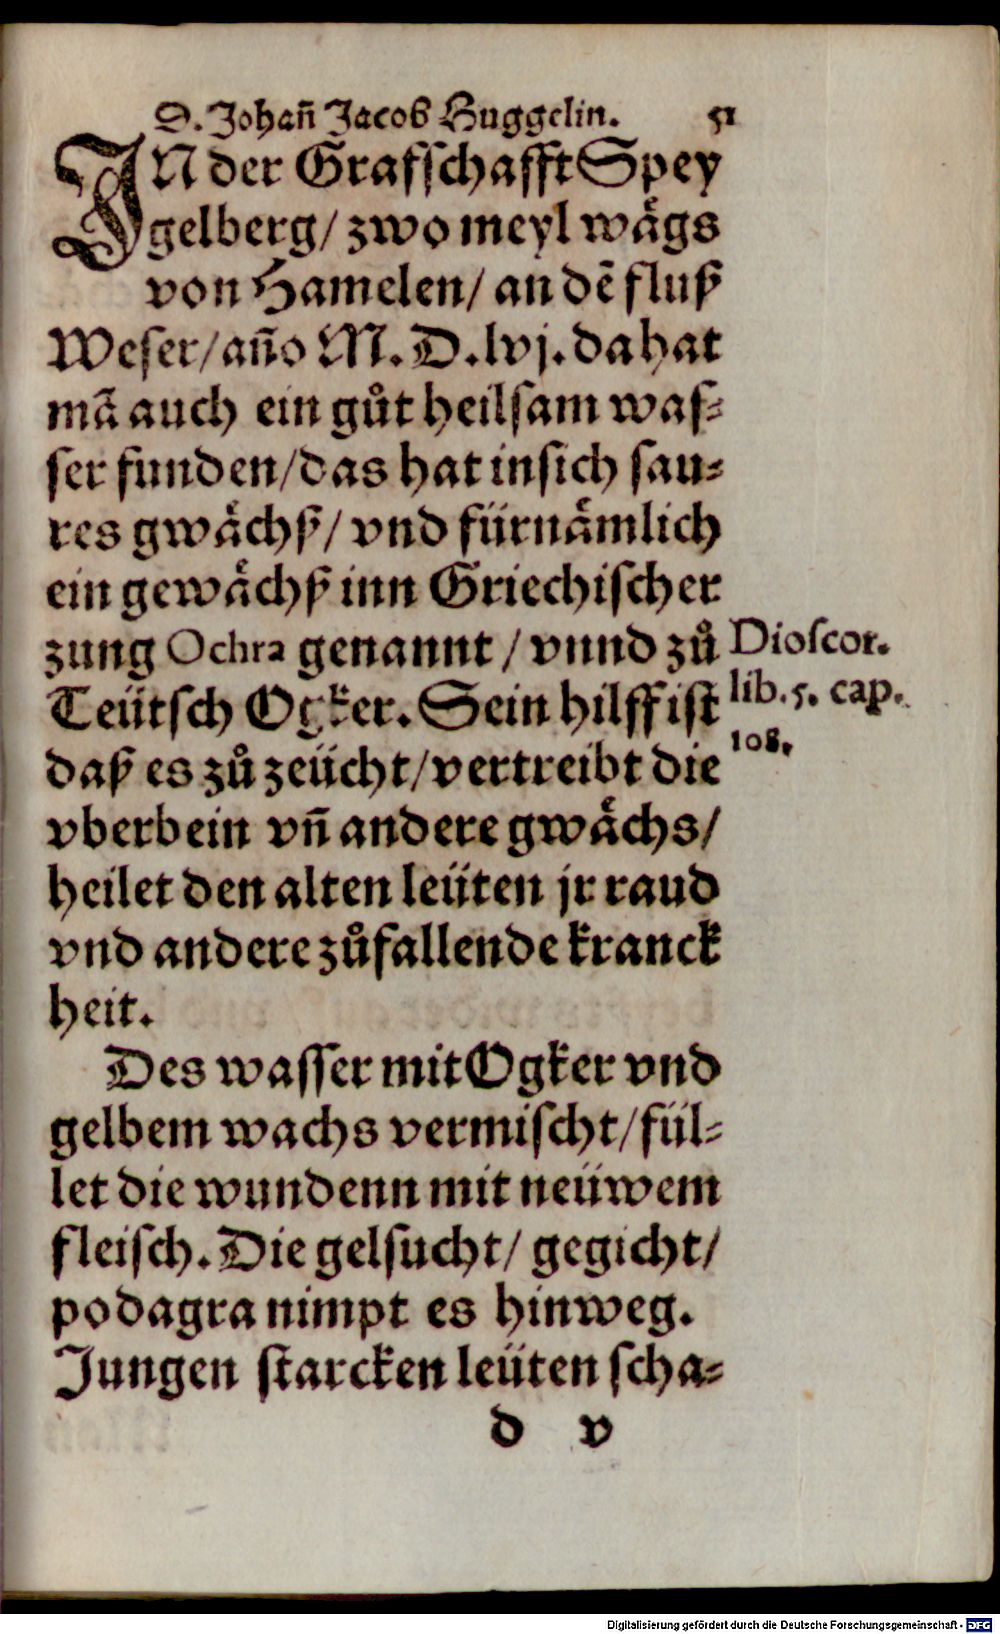 D. Johañ Jacob Huggelin. 51
IN der Grafſchafft Spey
gelberg/ zwo meyl wågs
von Hamelen/ an dē fluß
Weſer/ año M. D. lvj. da hat
mā auch ein gůt heilſam waſ⸗
ſer funden/ das hat inſich ſau⸗
res gwåchß/ vnd fürnåmlich
ein gewåchß inn Griechiſcher
zung Ochra genannt / vnnd zů
Teütſch Ogker. Sein hilff iſt
daß es zů zeücht/ vertreibt die
vberbein vñ andere gwåchs/
heilet den alten leüten jr raud
vnd andere zůfallende kranck
heit.
Dioſcor.
lib. 5. cap.
108.
Des waſſer mit Ogker vnd
gelbem wachs vermiſcht/ fül⸗
let die wundenn mit neüwem
fleiſch. Die gelſucht/ gegicht/
podagra nimpt es hinweg.
Jungen ſtarcken leüten ſcha⸗
d v
Digitalisierung gefördert durch die Deutsche Forschungsgemeinschaft - DFG